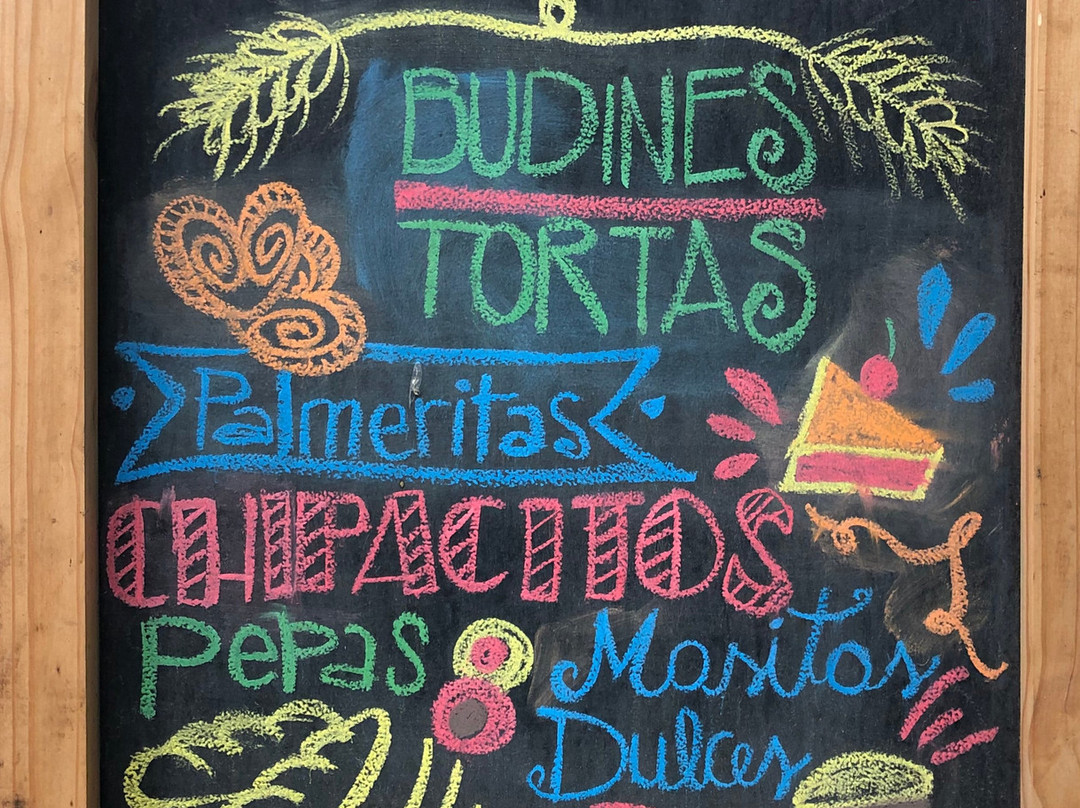 BUDINES
TORTAS
Palmeritas
CHIPACITOS
Pepas
Masitas
Dulces